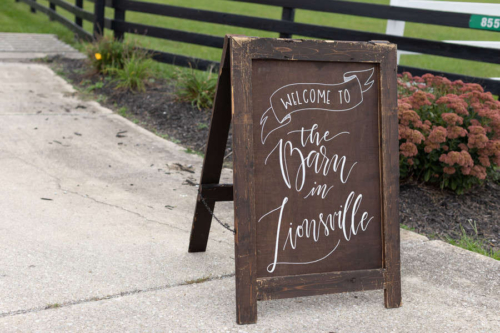 855
WELCOME TO
The
Barn
in
Zionsville